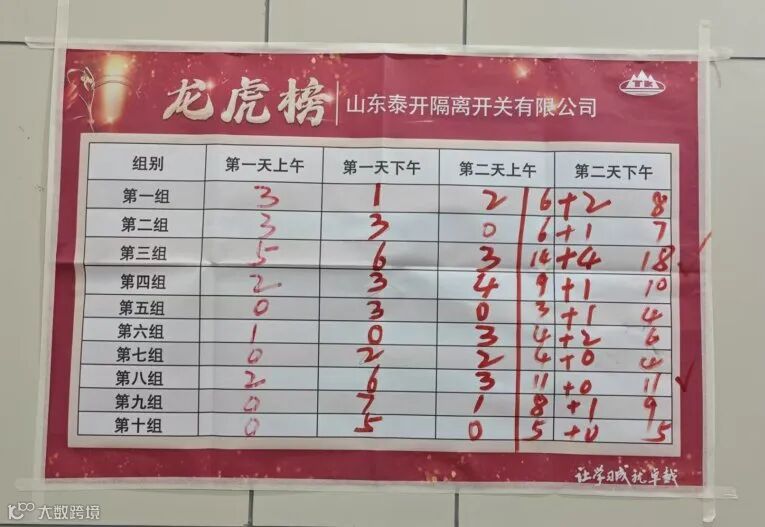 龙虎榜 山东泰开隔离开关有限公司
组别 第一天上午 第一天下午 第二天上午 第二天下午
第一组 3 1 2 6 +2 8
第二组 3 3 0 6 +1 7
第三组 5 6 3 14 +4 18 ✓
第四组 2 3 4 9 +1 10
第五组 0 3 0 3 +1 4
第六组 1 0 3 4 +2 6
第七组 0 2 2 4 +0 4
第八组 2 6 3 11 +0 11 ✓
第九组 0 7 1 8 +1 9
第十组 0 5 0 5 +0 5
让学习成就卓越
大数跨境